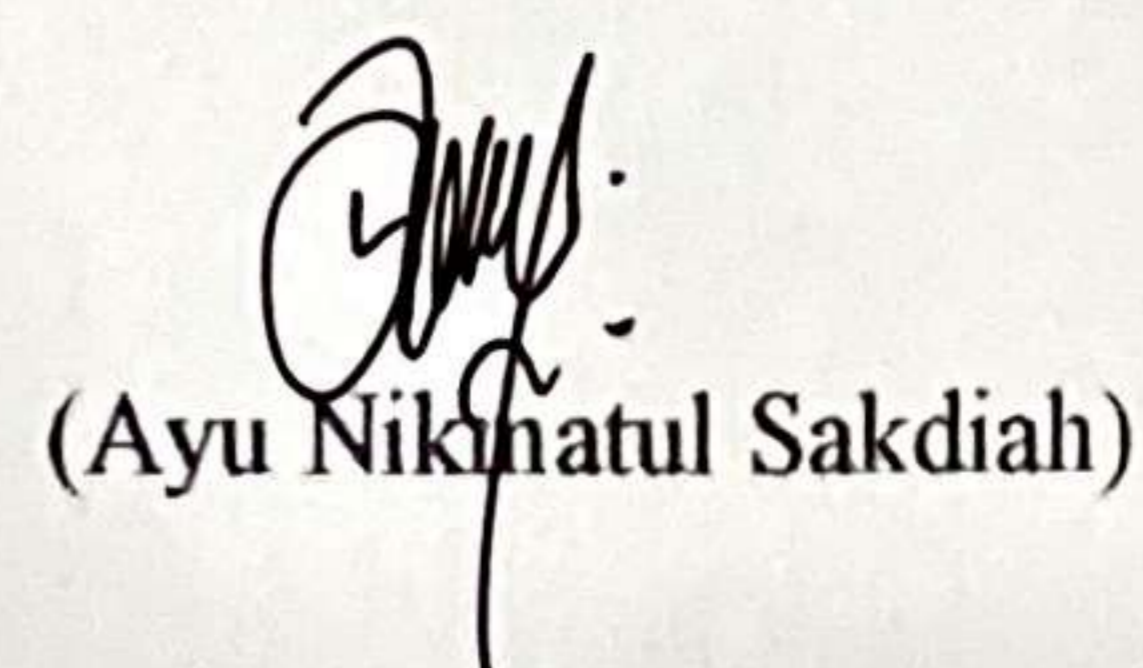 (Ayu Nikmatul Sakdiah)